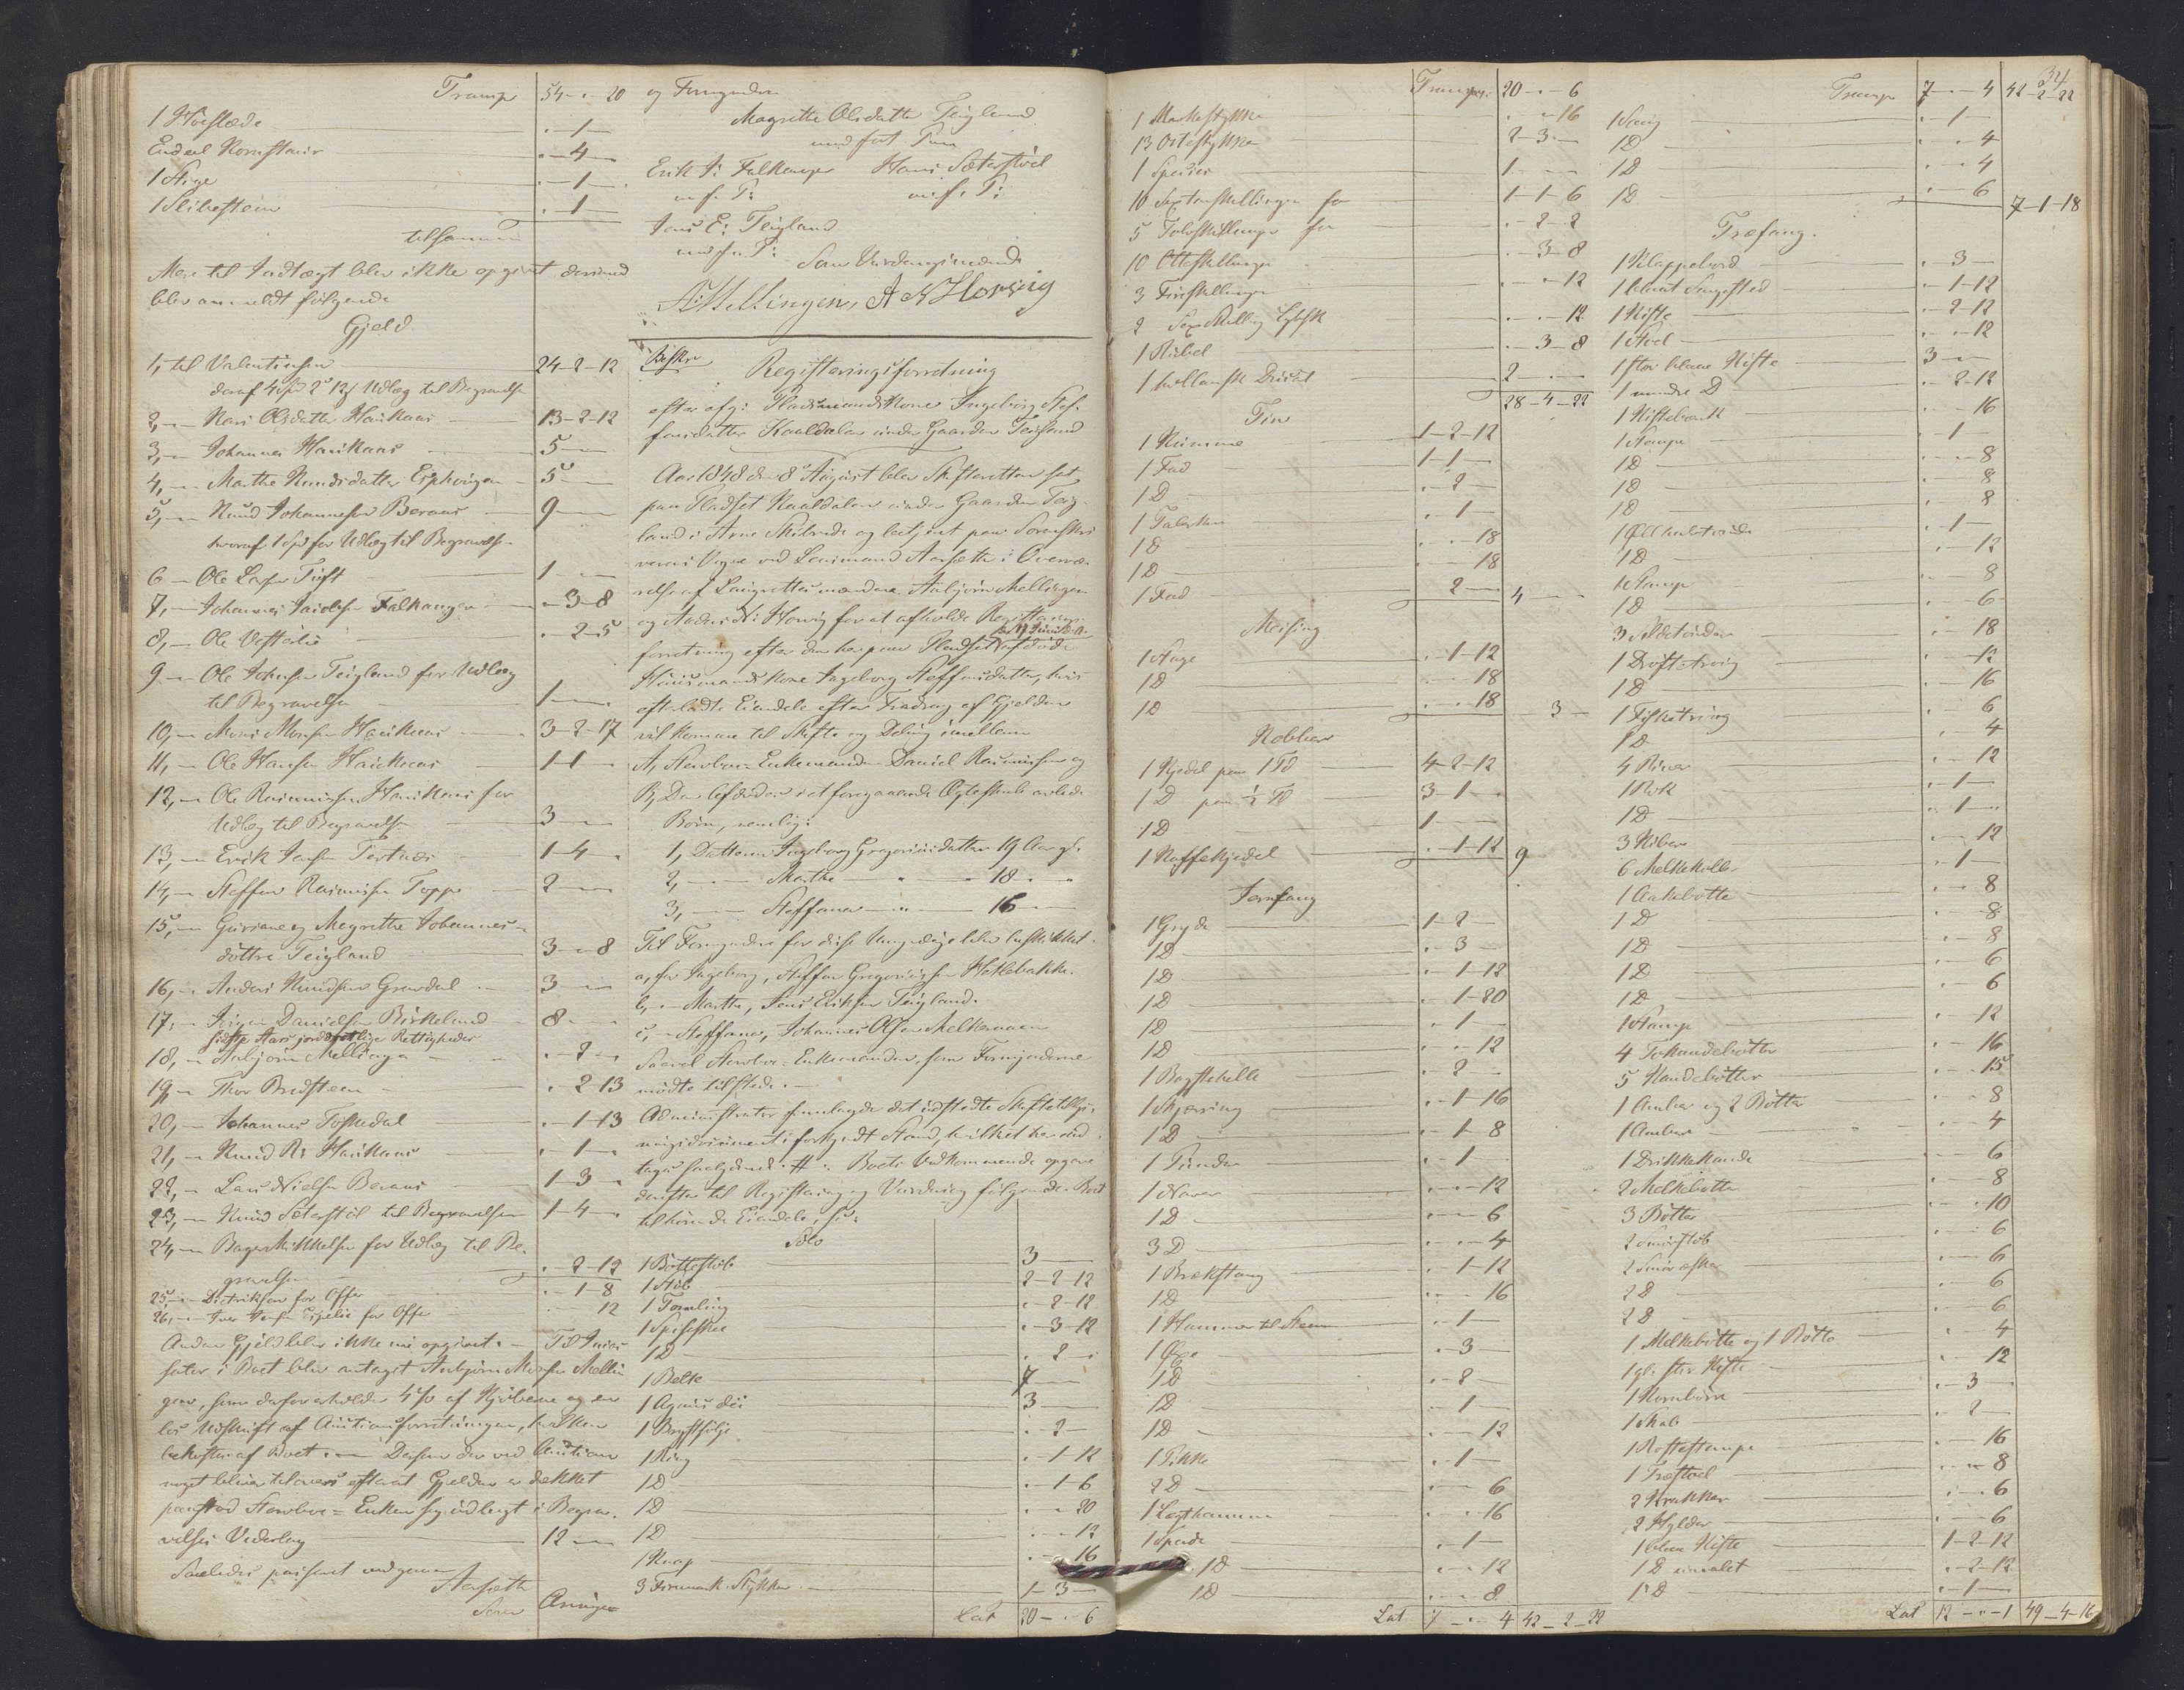 Transp 54 - " - 20
1 Höeslæde " - 1 -
Endeel Kornstaur " - 4 -
1 Stige " - 1 -
1 Slibesteen " - 1 -
tilsammen
Mere til Indtægt blev ikke opgivet derimod
blev anmeldt følgende
Gjeld
1, til Valentinsen 24 - 2 - 12
deraf 4 Spd 2 12 s Udlæg til Begravelse
2, - Kari Olsdatter Haukaas 13 - 2 - 12
3, - Johannes Haukaas 5 -
4, - Marthe Knudsdatter 5 -
5, - Knud Johannesen Beraas 9 -
hvoraf 1 Spd for Udlæg til Begravelse
6 - Ole Larsen Tuft 1 -
7, - Johannes Jacobsen Falkanger " - 3 - 8
8, - Ole " - 2 - 5
9 - Ole Johnsen Teigland for Udlæg
til Begravelse 1 -
10, - Mons Monsen Haukaas 3 - 2 - 17
11, - Ole Hansen Haukaas 1 - 1 -
12, - Ole Rasmussen Haukaas for
Udlæg til Begravelse 3 -
13, - Erik Jensen Tertnæs 1 - 4 -
14, - Steffen Rasmussen Toppe 2 -
15, - og Megrethe Johannes-
døttre Teigland 3 - " - 8
16, - Anders Knudsen Gravdal 3 -
17, - Danielsen Birkeland 8 -
sidste Aars jorddrotlige Rettigheder
18, - Anbjörn Mellingen " - 2 -
19, - Thor Bredsteen " - 2 - 13
20, - Johannes " - 1 - 13
21, - Knud R: Haukaas " - 1 -
22, - Lars Nielsen Beraas 1 - 3 -
23, - Knud Sæterstöl til Begravelsen 1 - 4 -
24, - Bager Mikkelsen for Udlæg til Be-
gravelse " - 2 - 12
25, - Didriksen for Offer " - 1 - 8
26, - Iver Jensen for Offer 12
Anden Gjeld blev ikke nu opgivet. - Til Incas-
sator i Boet blev antaget Anbjörn Monsen Mellin
gen, som derfor erholder 4 % af Kjøberne og en
lös Udskrift af Auctionsforretningen, hvilken
bekostes af Boet. - Dersom der ved Auctionen
noget bliver tilovers efterat Gjelden er dækket
paastod Stervboe-Enken sig udlagt i Begra-
velses Vederlag 12 -
Saaledes passeret vedgaaes
Aarsæth
Som Arvinger

og Formyndere
Magrethe Olsdatter Teigland
med ført Pen
Erik J: Falkanger Hans Sæterstöl
m. f. P: m. f. P:
Jens E: Teigland
med f. P: Som Vurderingsmænd
A: Mellingen, A N Horvig
Besk:
Registreringsforretning
efter afg: Pladsmandskone Ingeborg Stef-
fensdatter Kaaldalen under Gaarden Teigland
Aar 1848 den 8 August blev Skifteretten sat
paa Pladset Kaaldalen under Gaarden Teig-
land i Arne Skibrede og betjent paa Sorenskri
verens Vegne ved Lensmand Aarsæth i Overvæ-
relse af Laugrettesmændene Anbjörn Mellingen
og Anders N: Horvig for at afholde Registrerings-
forretning efter den her paa Pladset afdöde
Huusmandskone Ingeborg Steffensdatter, hvis
efterladte Eiendele efter Fradrag af Gjelden
vil komme til Skifte og Deling imellem
A, Stervboe-Enkemanden Daniel Rasmussen og
B, Den Afdödes i et foregaaende Ægteskab avlede
Børn, nemlig:
1, Datteren Ingeborg Gregoriusdatter 19 Aar gl.
2, - Marthe " - 18 - "
3, - Steffane - " - 16
Til Formyndere for disse Umyndige blev beskikket.
a, for Ingeborg, Steffen Gregoriussen
b, - Marthe, Jens Eriksen Teigland.
c, - Steffane, Johannes Olsen
Saavel Stervboe-Enkemanden, som Formynderne
mødte tilstede. -
Administrator fremlagde det udstedte Skifte
i forkyndt Stand, hvilket her ind-
tages saalydende: # : Boets Vedkommende opgave
derefter til Registrering og Vurdering følgende Boet
tilhørende Eiendele, s.
Sölv
1 3 -
1 Stöb 2 - 2 - 12
1 Tomling " - 2 - 12
1 Spiseskee " - 3 - 12
1 D " - 2 -
1 Belte 7 -
1 Agnus dei 3 -
1 Brystsölje " - 2 -
1 Ring " - 1 - 12
1 D " - 1 - 6
1 D " - " - 20
1 D " - " - 12
1 Knap " - " - 16
3 Stykker 1 - 3 -
Lat 20 - " - 6

Transp: 20 - " - 6
1 Markstykke " - " - 16
13 Ortstykker 2 - 3 -
1 Specier 1 -
10 Sextenskillinger for 1 - 1 - 6
5 Tolvskillinger for " - 2 - 2
10 Otteskillinger " - 3 - 8
3 Fireskillinger " - " - 12
2 Sex Skilling Lybsk " - " - 12
1 Rubel " - 3 - 8
1 hollansk Ducat 2 -
28 - 4 - 22
Tin
1 Kumme 1 - 2 - 12
1 Fad 1 - 1 -
1 D " - 2 -
1 Talerken " - 1 -
1 D " - " - 18
1 D " - " - 18
1 Fad 2 - 4 -
Messing
1 Stage " - 1 - 12
1 D " - " - 18
1 D " - " - 18 " 3 -
Kobber
1 Kjedel paa 1 Td 4 - 2 - 12
1 D paa ½ Td 3 - 1 -
1 D 1 -
1 Kaffekjedel " - 1 - 12 9 -
Jernfang
1 Gryde 1 - 2 -
1 D " - 3 -
1 D " - 1 - 12
1 D " - 1 - 20
1 D " - 1 -
1 D " - " - 12
1 Bagstehelle " - 2 -
1 Skjæring " - 1 - 16
1 D " - 1 - 8
1 " - 1 -
1 Naver " - " - 12
1 D " - " - 6
3 D " - " - 4
1 Brækstang " - 1 - 12
1 D " - " - 16
1 Hammer til Steen " - 1 -
1 Öxe " - 3 -
1 D " - 2 -
1 D " - 1 -
1 D " - " - 12
1 Pikke " - 1 -
2 D " - " - 6
1 " - " - 16
1 Spade " - 1 -
1 D " - " - 12
1 D " - " - 8
Lat 7 - " - 4 42 - 2 - 22

34
Transp 7 - " - 4 42 - 2 - 22
1 Saug " - 1 -
1 D " - " - 4
1 D " - " - 4
1 D " - " - 6 7 - 1 - 18
Træfang.
1 Klappebord " - 3 -
1 blaat Sengested " - 1 - 12
1 Kiste " - 2 - 12
1 Stoel " - " - 12
1 stor blaae Kiste 3 -
1 mindre D " - 2 - 12
1 Kistebænk " - " - 16
1 Stampe " - 1 -
1 D " - " - 8
1 D " - " - 8
1 D " - " - 8
1 Öll halvtönde " - 1 -
1 D " - " - 12
1 Stamp " - " - 8
1 D " - " - 6
3 Sildetönder " - " - 18
1 Dröftetroug " - " - 12
1 D " - " - 16
1 Fisketroug " - " - 6
1 D " - " - 4
4 River " - " - 12
1 Rok " - 1 -
1 D " - 1 -
3 Kiber " - " - 12
6 Melkekoller " - 1 -
1 Aaklebötte " - " - 8
1 D " - " - 8
1 D " - " - 8
1 D " - " - 6
1 D " - " - 6
1 Stamp " - " - 12
4 Tokandebötter " - " - 16
5 Kandebötter " - " - 15
1 Ambar og 2 Bötter " - " - 8
1 Ambar " - " - 4
1 Drikkekande " - " - 6
2 Melkebötter " - " - 8
3 Bötter " - " - 10
2 " - " - 6
2 Smöræsker " - " - 6
2 D " - " - 6
2 D " - " - 6
1 Melkebötte og 1 Bötte " - " - 4
1 gl. stor Kiste " - " - 12
1 Kornbörre " - 3 -
1 Skab " - 2 -
1 Rostestampe " - " - 16
1 Træstoel " - " - 8
2 Krakker " - " - 6
2 Hylder " - " - 6
1 blaae Kiste 1 - 2 - 12
1 D umalet " - 2 - 12
1 D " - 1 -
Lat 12 - " - 1 49 - 4 - 16